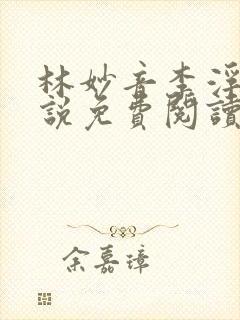 林妙音李淫
說免費閱讀
余嘉璋